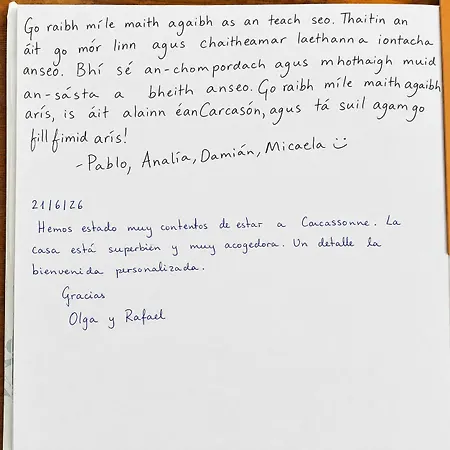 Go raibh míle maith agaibh as an teach seo. Thaitin an
áit go mór linn agus chaitheamar laethanna iontacha
anseo. Bhí sé an-chompordach agus mhothaigh muid
an-sásta a bheith anseo. Go raibh míle maith agaibh
arís, is áit alainn éan Carcasón, agus tá suil agam go
fillfimid arís!
-Pablo, Analía, Damián, Micaela
21/6/26
Hemos estado muy contentos de estar a Carcassonne. La
casa está superbién y muy acogedora. Un detalle la
bienvenida personalizada.
Gracias
Olga y Rafael